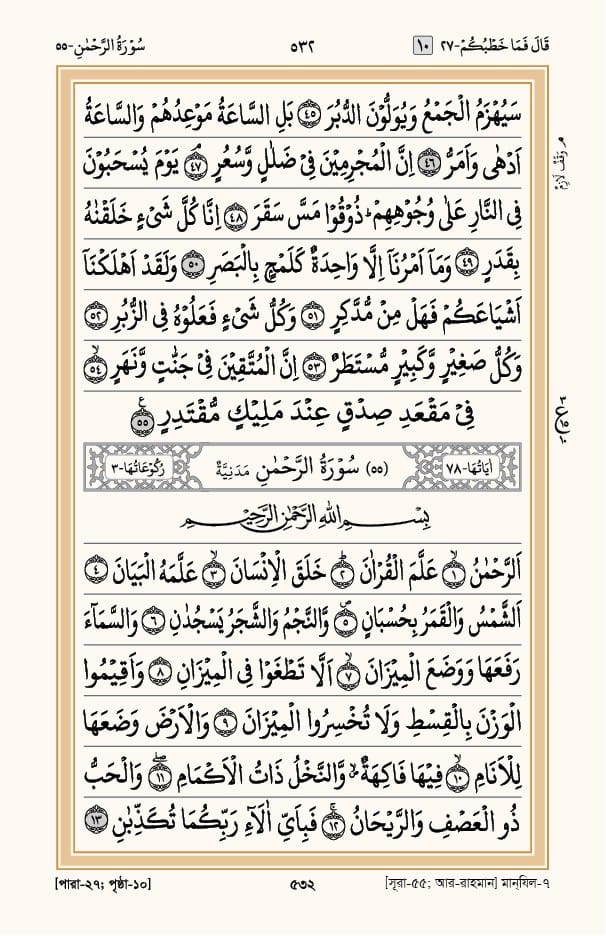 قَالَ فَمَا خَطْبُكُمْ-٢٧ ١٠ ٥٣٢ سُوْرَةُ الرَّحْمٰنِ-٥٥
سَيُهْزَمُ الْجَمْعُ وَيُوَلُّوْنَ الدُّبُرَ ۝٤٥ بَلِ السَّاعَةُ مَوْعِدُهُمْ وَالسَّاعَةُ
اَدْهٰى وَاَمَرُّ ۝٤٦ اِنَّ الْمُجْرِمِيْنَ فِيْ ضَلٰلٍ وَّسُعُرٍ ۝٤٧ يَوْمَ يُسْحَبُوْنَ
م وَقْف لَازِمْ
فِى النَّارِ عَلٰى وُجُوْهِهِمْ ؕ ذُوْقُوْا مَسَّ سَقَرَ ۝٤٨ اِنَّا كُلَّ شَيْءٍ خَلَقْنٰهُ
بِقَدَرٍ ۝٤٩ وَمَاۤ اَمْرُنَاۤ اِلَّا وَاحِدَةٌ كَلَمْحٍۭ بِالْبَصَرِ ۝٥٠ وَلَقَدْ اَهْلَكْنَاۤ
اَشْيَاعَكُمْ فَهَلْ مِنْ مُّدَّكِرٍ ۝٥١ وَكُلُّ شَيْءٍ فَعَلُوْهُ فِى الزُّبُرِ ۝٥٢
وَكُلُّ صَغِيْرٍ وَّكَبِيْرٍ مُّسْتَطَرٌ ۝٥٣ اِنَّ الْمُتَّقِيْنَ فِيْ جَنّٰتٍ وَّنَهَرٍ ۙ۝٥٤
فِيْ مَقْعَدِ صِدْقٍ عِنْدَ مَلِيْكٍ مُّقْتَدِرٍ ۝٥٥ ع
اٰيَاتُهَا-٧٨ (٥٥) سُوْرَةُ الرَّحْمٰنِ مَدَنِيَّةٌ رُكُوْعَاتُهَا-٣
بِسْمِ اللهِ الرَّحْمٰنِ الرَّحِيْمِ
اَلرَّحْمٰنُ ۙ۝١ عَلَّمَ الْقُرْاٰنَ ؕ۝٢ خَلَقَ الْاِنْسَانَ ۙ۝٣ عَلَّمَهُ الْبَيَانَ ۝٤
اَلشَّمْسُ وَالْقَمَرُ بِحُسْبَانٍ ۪۝٥ وَّالنَّجْمُ وَالشَّجَرُ يَسْجُدٰنِ ۝٦ وَالسَّمَآءَ
رَفَعَهَا وَوَضَعَ الْمِيْزَانَ ۙ۝٧ اَلَّا تَطْغَوْا فِى الْمِيْزَانِ ۝٨ وَاَقِيْمُوا
الْوَزْنَ بِالْقِسْطِ وَلَا تُخْسِرُوا الْمِيْزَانَ ۝٩ وَالْاَرْضَ وَضَعَهَا
لِلْاَنَامِ ۙ۝١٠ فِيْهَا فَاكِهَةٌ ۪ۙ وَّالنَّخْلُ ذَاتُ الْاَكْمَامِ ۖ۝١١ وَالْحَبُّ
ذُو الْعَصْفِ وَالرَّيْحَانُ ۚ۝١٢ فَبِاَيِّ اٰلَآءِ رَبِّكُمَا تُكَذِّبٰنِ ۝١٣
[পারা-২৭; পৃষ্ঠা-১০] ৫৩২ [সূরা-৫৫; আর-রাহমান] মান্‌যিল-৭